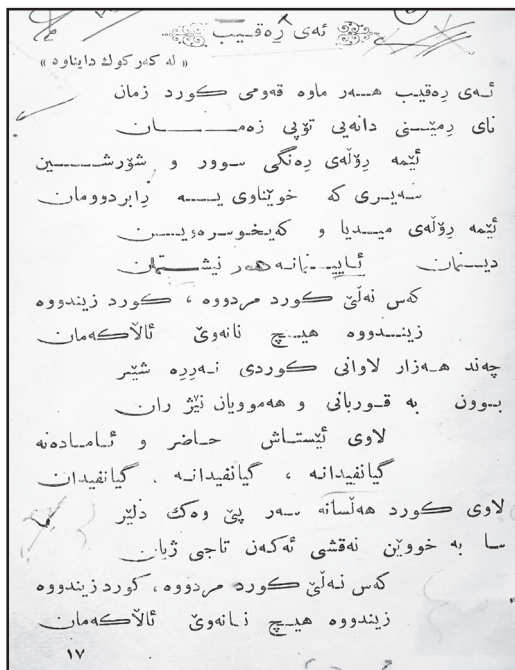 ئەی ڕەقیب
« لە کەرکوك دایناوە »
ئەی ڕەقیب هەر ماوە قەومی کورد زمان
نای ڕمێنی دانەیی تۆپی زەمان
ئێمە ڕۆڵەی ڕەنگی سوور و شۆڕشین
سەیری کە خوێناوی یە ڕابردوومان
ئێمە ڕۆڵەی میدیا و کەیخوسرەوین
دینمان ئایینمانە هەر نیشتمان
کەس نەڵێ کورد مردووە ، کورد زیندووە
زیندووە هیچ نانەوێ ئاڵاکەمان
چەند هەزار لاوانی کوردی نەڕە شێر
بوون بە قوربانی و هەموویان نێژ ران
لاوی ئێستاش حاضر و ئامادەنە
گیانفیدانە ، گیانفیدانە . گیانفیدان
لاوی کورد هەڵسانە سەر پێ وەك دلێر
سا بە خووێن نەقشی ئەکەن تاجی ژیان
کەس نەڵێ کورد مردووە ، کورد زیندووە
زیندووە هیچ نانەوێ ئاڵاکەمان
١٧